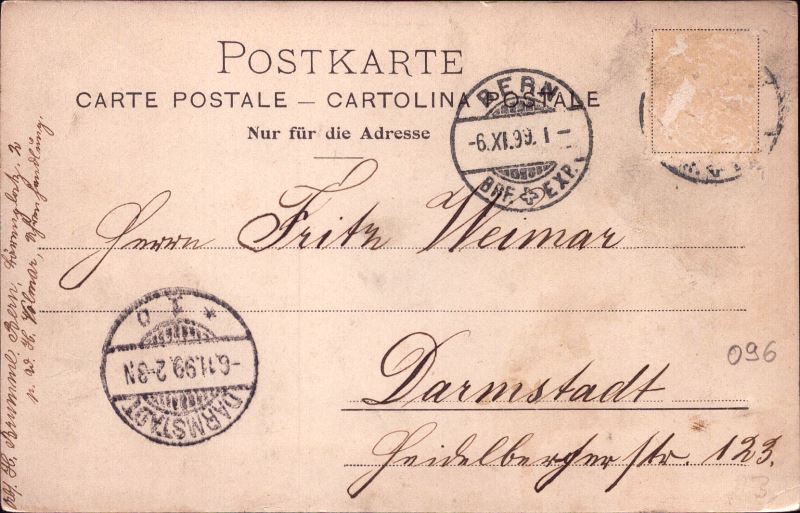 POSTKARTE
CARTE POSTALE — CARTOLINA POSTALE
Nur für die Adresse
BERN
-6.XI.99. 1 -
BRF. EXP.
Herrn Fritz Weimar
Darmstadt
Heidelbergerstr. 123.
096
* 1 0 *
-6.11.99. 2-3N
DARMSTADT
H. Brumme, Bern,
p. ad. H. Volmar,